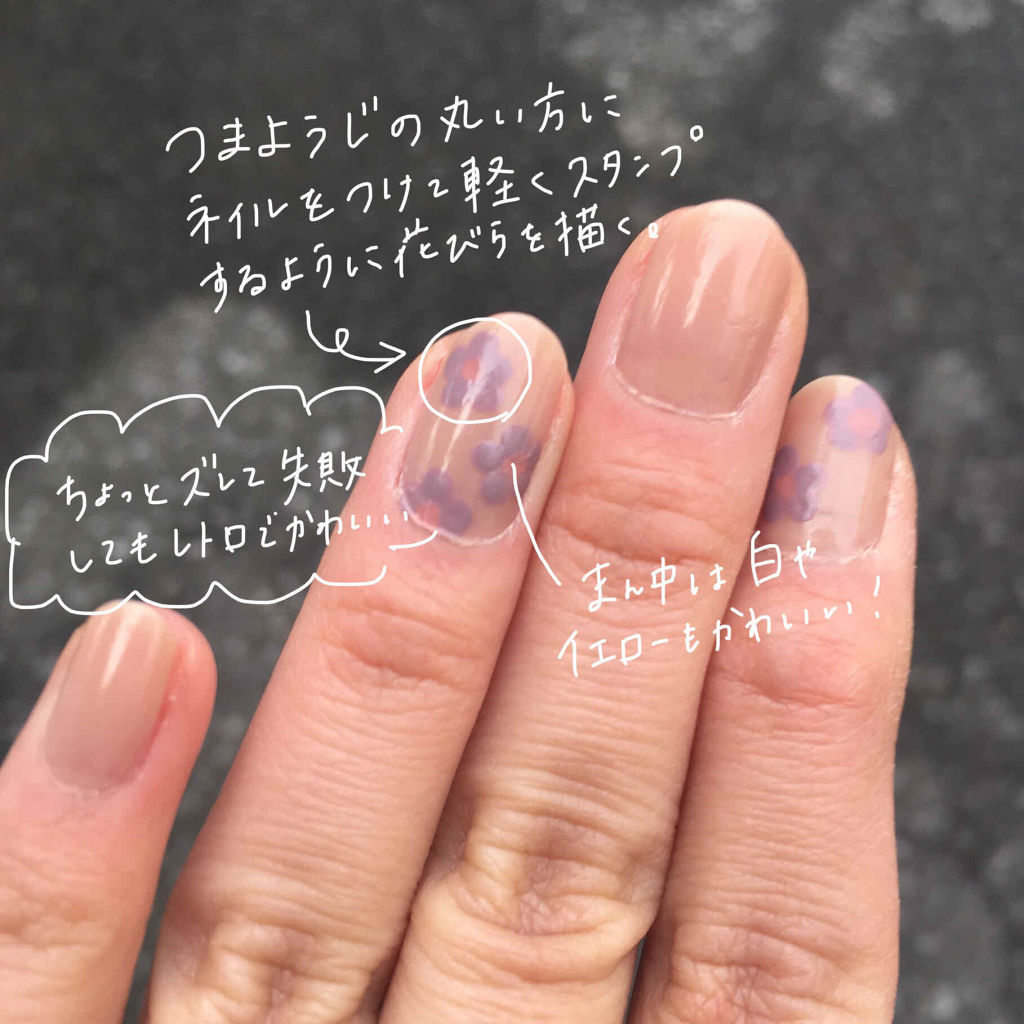 つまようじの丸い方に
ネイルをつけて軽くスタンプ
するように花びらを描く。
ちょっとズレて失敗
してもレトロでかわいい
まん中は白や
イエローもかわいい!